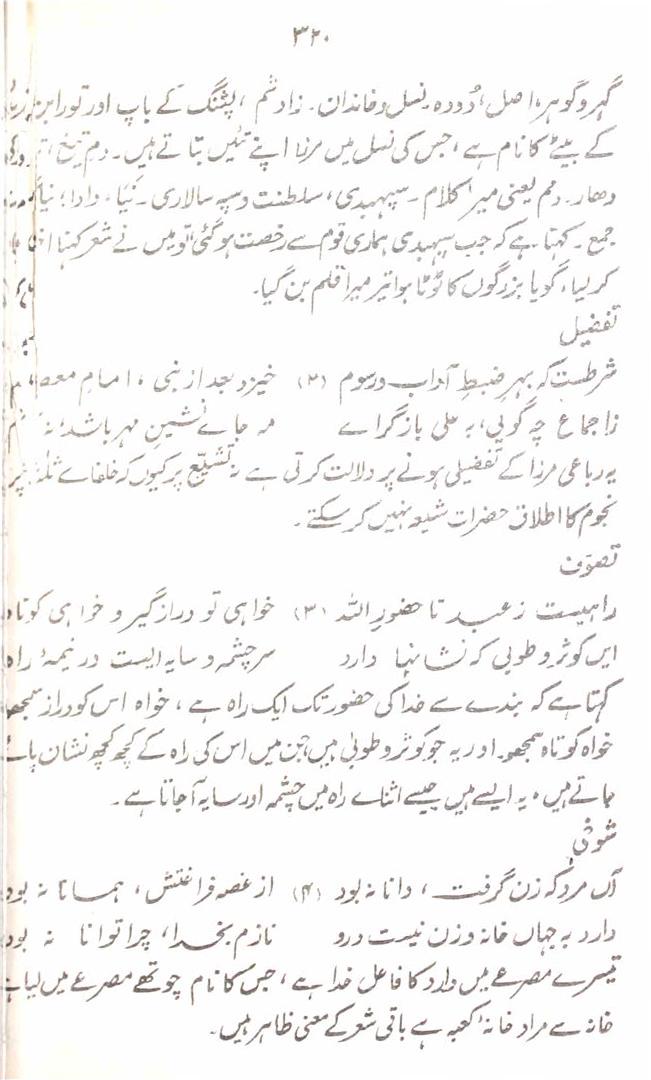 ۳۲۰
گہر و گوہر، اصل، دُودہ۔ نسل و خاندان۔ زادشم، پشنگ کے باپ اور تور ابن
کے بیٹے کا نام ہے، جس کی نسل میں مرزا اپنے تئیں بتاتے ہیں۔ دم تیغ،
دھار۔ دمم یعنی میرا کلام۔ سپہبدی، سلطنت و سپہ سالاری۔ نیا، دادا؛
جمع۔ کہتا ہے کہ جب سپہبدی ہماری قوم سے رخصت ہو گئی تو میں نے شعر کہنا
کر لیا، گویا بزرگوں کا ٹوٹا ہوا تیر میرا قلم بن گیا۔
تفضیل
شرطست کہ بہرِ ضبطِ آداب و رسوم (۲) خیزد بعد از نبی، امامِ
ز اجماع چہ گوئی، بہ علی باز گراے مہ جاے نشینِ مہر باشد، نہ
یہ رباعی مرزا کے تفضیلی ہونے پر دلالت کرتی ہے نہ تشیّع پر کیوں کہ خلفاے ثلٰثہ پر
نجوم کا اطلاق حضرات شیعہ نہیں کر سکتے۔
تصوّف
راہیست ز عبد تا حضورِ اللہ (۳) خواہی تو دراز گیر و خواہی کوتاہ
ایں کوثر و طوبیٰ کہ نشانہا دارد سرچشمہ و سایہ ایست در نیمۂ راہ
کہتا ہے کہ بندے سے خدا کی حضور تک ایک راہ ہے، خواہ اس کو دراز سمجھو
خواہ کوتاہ سمجھو۔ اور یہ جو کوثر و طوبیٰ ہیں جن میں اس کی راہ کے کچھ کچھ نشان پائے
جاتے ہیں، یہ ایسے ہیں جیسے اثناے راہ میں چشمہ اور سایہ آ جاتا ہے۔
شوخی
آں مرد کہ زن گرفت، دانا نہ بود (۴) از غصہ فراغتش، ہمانا نہ بود
دارد بہ جہاں خانہ و زن نیست درو نازم بخدا، چرا توانا نہ بود
تیسرے مصرعے میں دارد کا فاعل خدا ہے، جس کا نام چوتھے مصرعے میں لیا ہے
خانہ سے مراد خانۂ کعبہ ہے باقی شعر کے معنی ظاہر ہیں۔